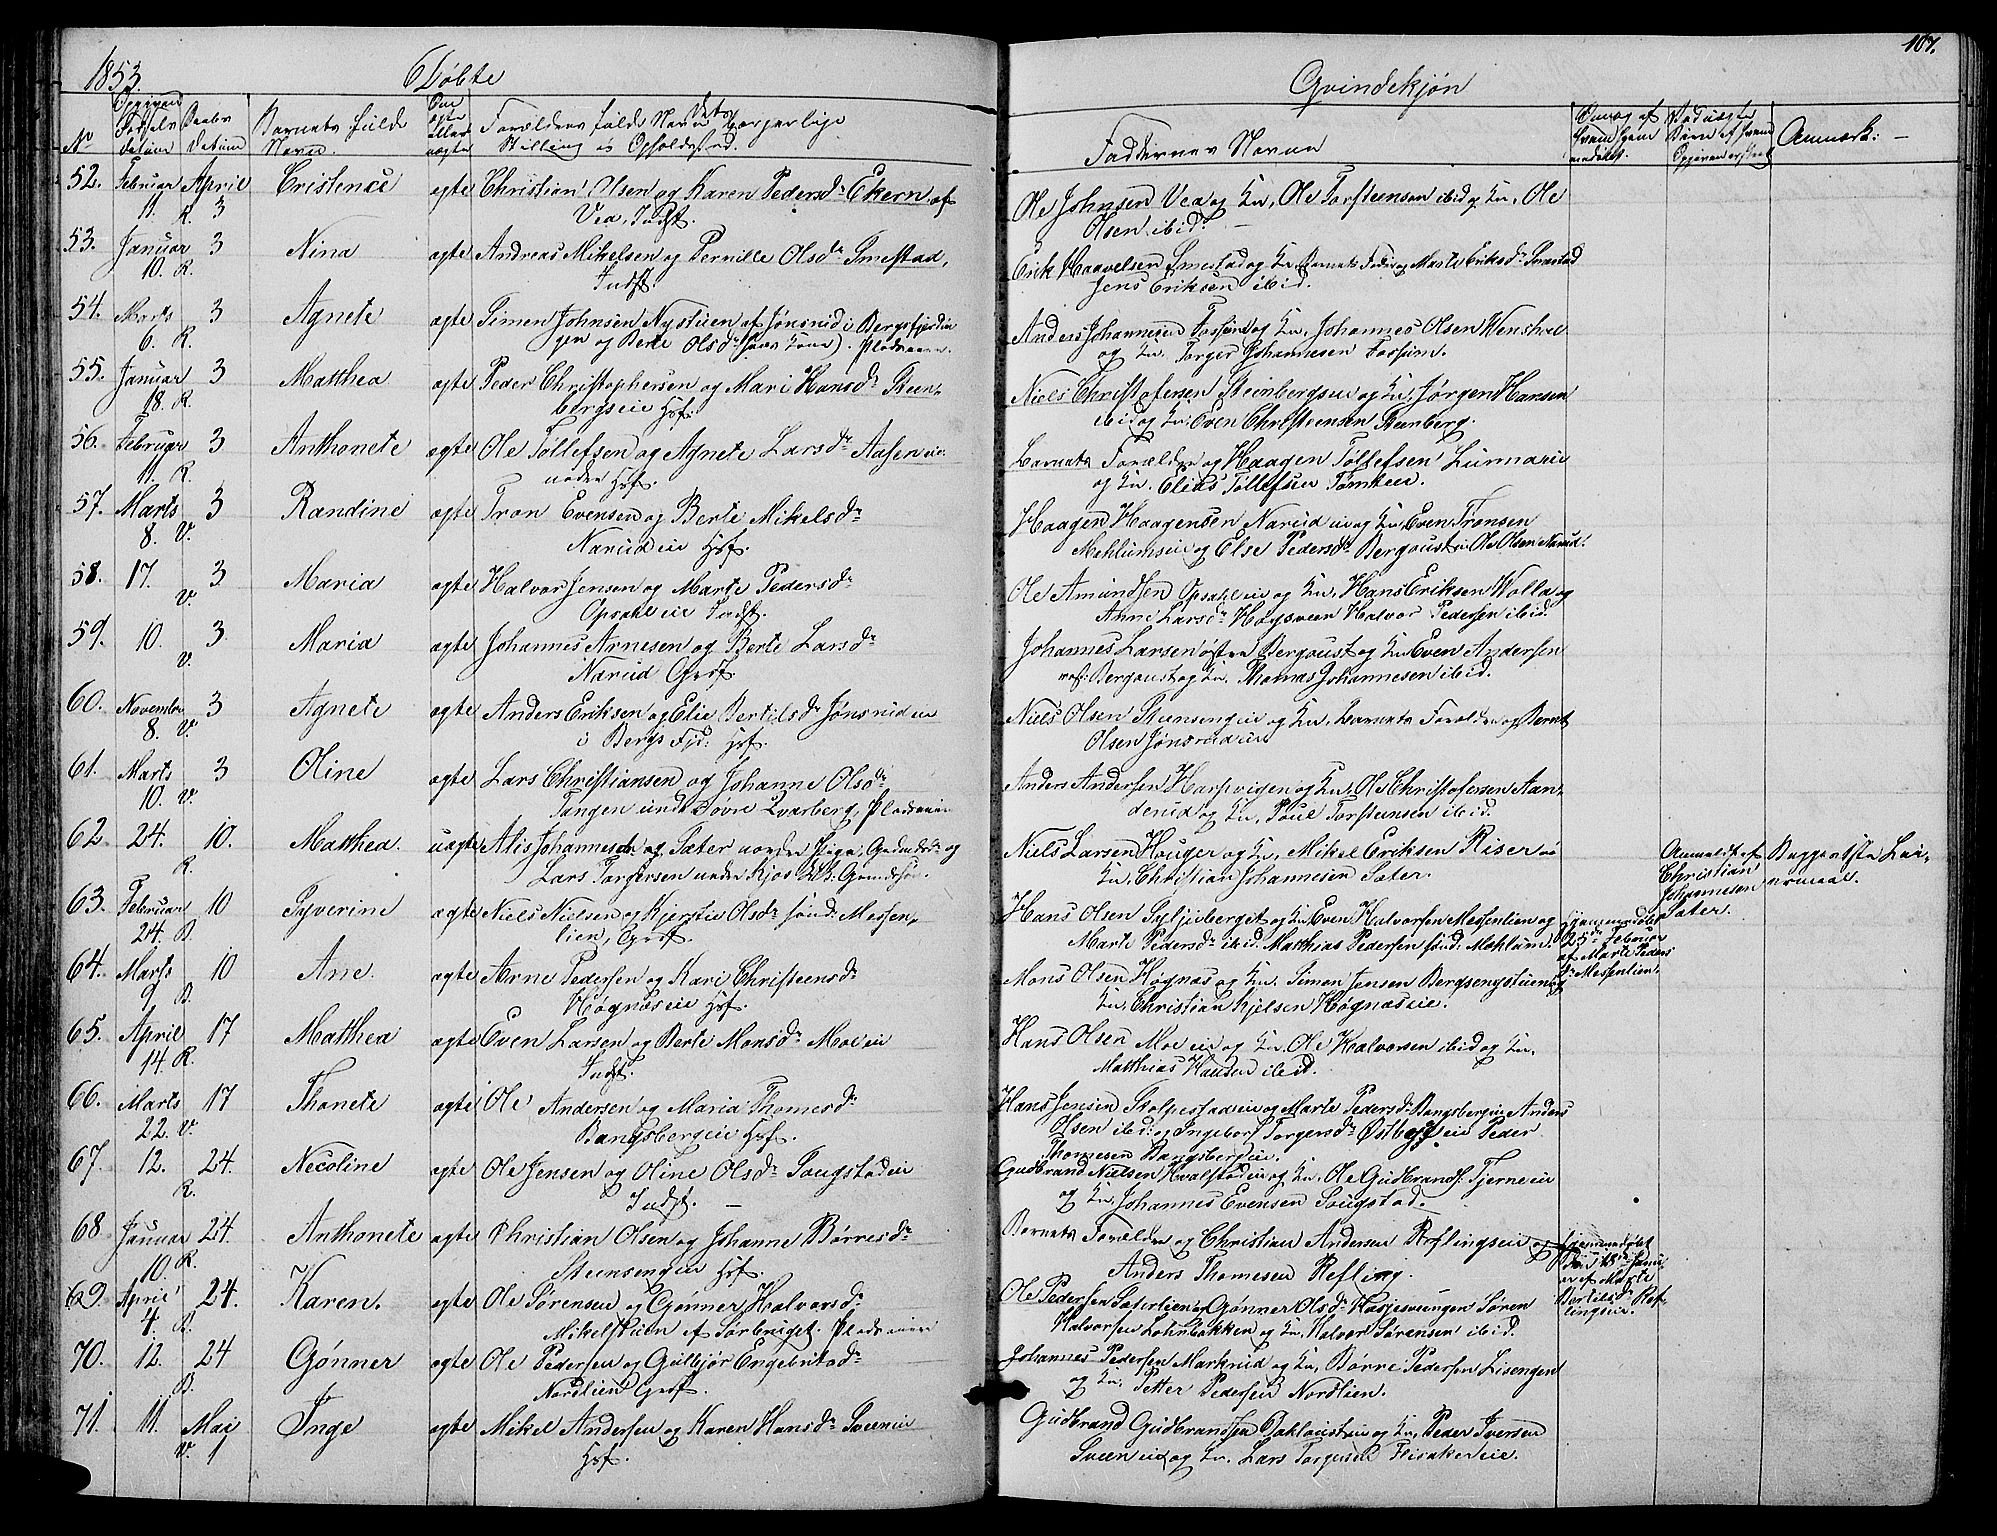 1853. Døbte Qvindekjøn 167.
No Opgiven Fødsels Datum Daabs Datum Barnets fulde Navn. Om ægte eller uægte Forældres fulde Navn dets borgerlige Stilling og Opholdssted. Faddernes Navne Anmærk: —
52. Februar 11. R. April 3 Cristence ægte Christian Olsen og Karen Pedersdr Ekern af
Vea, Indst. Ole Johnsen Vea og Kn, Ole Torstensen ibid og Kn, Ole
Olsen ibid. —
53. Januar 10. R. 3 Nina ægte Andreas Mikelsen og Pernille Olsdr Smestad,
Indst. Erik Haavelsen Smestad og Kn, Barnets Fader og Marte Eriksdr Smestad
Jens Eriksen ibid.
54. Marts 6. R. 3 Agnete ægte Simen Johnsen Nystuen af Jønsrud i Bergsfjerdin
gen og Berte Olsdr (hans Kone). Pladseier. Anders Johannesen Fossum og Kn, Johannes Olsen
og Kn. Torger Johannesen Fossum.
55. Januar 18. R. 3 Matthea ægte Peder Christophersen og Mari Hansdr Steen-
bergseie Hsf. Niels Christofersen Steinbergseie og Kn, Jørgen Hansen
ibid og Kn, Even Christensen Steenberg.
56. Februar 11. R. 3 Anthonete ægte Ole Tollefsen og Agnete Larsdr Aasen eie
nodre Hsf. Barnets Forældre og Haagen Tollefsen
og Kn. Elias Tollefsen
57. Marts 8. V. 3 Randine ægte Tron Evensen og Berte Mikelsdr
Narud eie Hsf. Haagen Haagensen Narud eie og Kn, Even Tronsen
Mehlumseie og Else Pedersdr Bergoust. Ole Olsen Narud.
58. 17. V. 3 Maria ægte Halvor Jensen og Marte Pedersdr
Opsahl eie Indst. Ole Amundsen Opsahl eie og Kn, Hans Eriksen Wolla og
Anne Larsdr Høgsveen Halvor Pedersen ibid.
59. 10. V. 3. Maria ægte Johannes Arnesen og Berte Larsdr
Narud Grdf. Johannes Larsen østre Bergoust og Kn Even Andersen
Bergoust og Kn, Thomas Johannesen ibid.
60. November 8. V. 3 Agnete ægte Anders Eriksen og Elie Bertilsdr Jønsrud eie
i Bergs Fjd: Hsf. Niels Olsen Steensengeie og Kn, Barnets Forældre og Bernt
Olsen Jønsrud eie
61. Marts 10. V. 3 Oline ægte Lars Christiansen og Johanne Olsdr
Tangen under øvre Qvarberg, Pladseeie Anders Andersen Harpvigen og Kn, Ole Christofersen Aan-
derud og Kn, Poul Torstensen ibid.
62 24. R. 10. Matthea. uægte Alis Johannesdr og Sæter nordre Pige,
Lars Torgersen under Kjos Niels Larsen Houger og Kn, Mikel Eriksen Riser
Kn. Christian Johannesen Sæter. Anmeldt af Christian Johannesen Sæter. Beggers 1ste Lei-
ermaal.
63. Februar 24. B. 10 Syverine ægte Niels Nielsen og Kjersti Olsdr sønd: Messen-
lien, Grdf. Hans Olsen Syljuberget og Kn Even Halvorsen Messenlien og
Marte Pedersdr ibid. Matthias Pedersen sønd. Mehlum. hjemmedøbt 25de Februar af Marte Pedersdr Messenlien.
64. Marts 9 B. 10 Ane. ægte Arne Pedersen og Kari Christensdr
Høgnæs eie Hsf. Mons Olsen Høgnæs og Kn. Simen Jensen Bergsengstuen og
Kn, Christian Kjelsen Høgnæseie.
65. April 14. R. 17 Matthea ægte Even Larsen og Berte Monsdr Moe eie
Indst. Hans Olsen Moe eie og Kn. Ole Halvorsen ibid og Kn,
Matthias Hansen ibid.
66. Marts 22. V. 17 Thonete ægte Ole Andersen og Maria Thomesdr
Bangsbergeie Hsf. Hans Jensen Stolpestad eie og Marte Pedersdr Bangsbergeie Anders
Olsen ibid: og Ingebor Torgersdr Østbergseie Peder
Thomesen Bangsbergeie.
67. 12. R. 24. Necoline ægte Ole Jensen og Oline Olsdr Sougstad eie
Indst. — Gudbrand Nielsen Hvalstad eie og Kn, Ole Gudbrands. Tjerne eie
og Kn, Johannes Evensen Sougstad.
68 Januar 10. R. 24. Anthonete ægte Christian Olsen og Johanne Børresdr
Steensengeie Hsf. Barnets Forældre og Christian Andersen Reflingseie og
Anders Thomesen Refling. hjemmedøbt den 18de Januar af Marte Bertilsdr Reflingseie.
69. April 4. B. 24. Karen. ægte Ole Sørensen og Gønner Halvorsdr
Mikelstuen af Sørbruget. Pladseeier Ole Pedersen Sæterlien og Gønner Olsdr Søren
Halvorsen Lohnbakken og Kn, Halvor Sørensen ibid.
70. 12. B. 24 Gønner ægte Ole Pedersen og Gulbjør Engebritsdr
Nordlien Grdf. Johannes Pedersen Markrud og Kn, Børre Pedersen Lisenget
og Kn, Petter Pedersen Nordlien.
71. 11. V. Mai 1 Inge ægte Mikel Andersen og Karen Hansdr Sveen eie
Hsf. Gudbrand Gudbrandsen og Kn, Peder Iversen
Sveen eie og Kn. Lars Torgersen Flisaker eie.